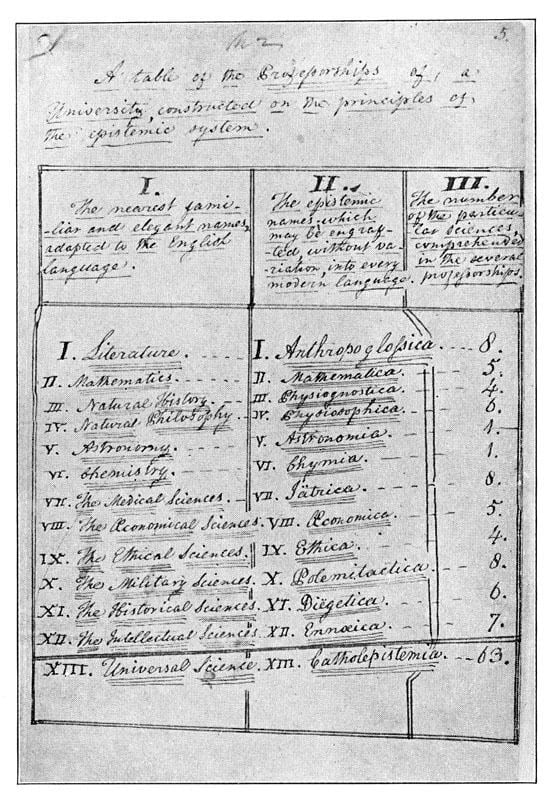 5.
A table of the Professorships of, a
University, constructed on the principles of,
the epistemic system.
I.
The nearest fami-
-liar and elegant names,
adapted to the English
language.
II.
The epistemic
names, which
may be engraf-
-ted, without va-
-riation, into every
modern language.
III.
The number
of the particu-
lar sciences,
comprehended
in the several
professorships.
I. Literature. I. Anthropoglossica. 8.
II. Mathematics. II. Mathematica. 5.
III. Natural History. III. Physiognostica. 4.
IV. Natural Philosophy. IV. Physiosophica. 6.
V. Astronomy. V. Astronomia. 1.
VI. Chemistry. VI. Chymia. 1.
VII. The Medical Sciences. VII. Iätrica. 8.
VIII. The Œconomical Sciences. VIII. Œconomica. 5.
IX. The Ethical Sciences. IX. Ethica. 4.
X. The Military Sciences. X. Polemitactica. 8.
XI. The Historical Sciences. XI. Diëgetica. 6.
XII. The Intellectual Sciences. XII. Ennœica. 7.
XIII. Universal Science. XIII. Catholepistemia. 63.